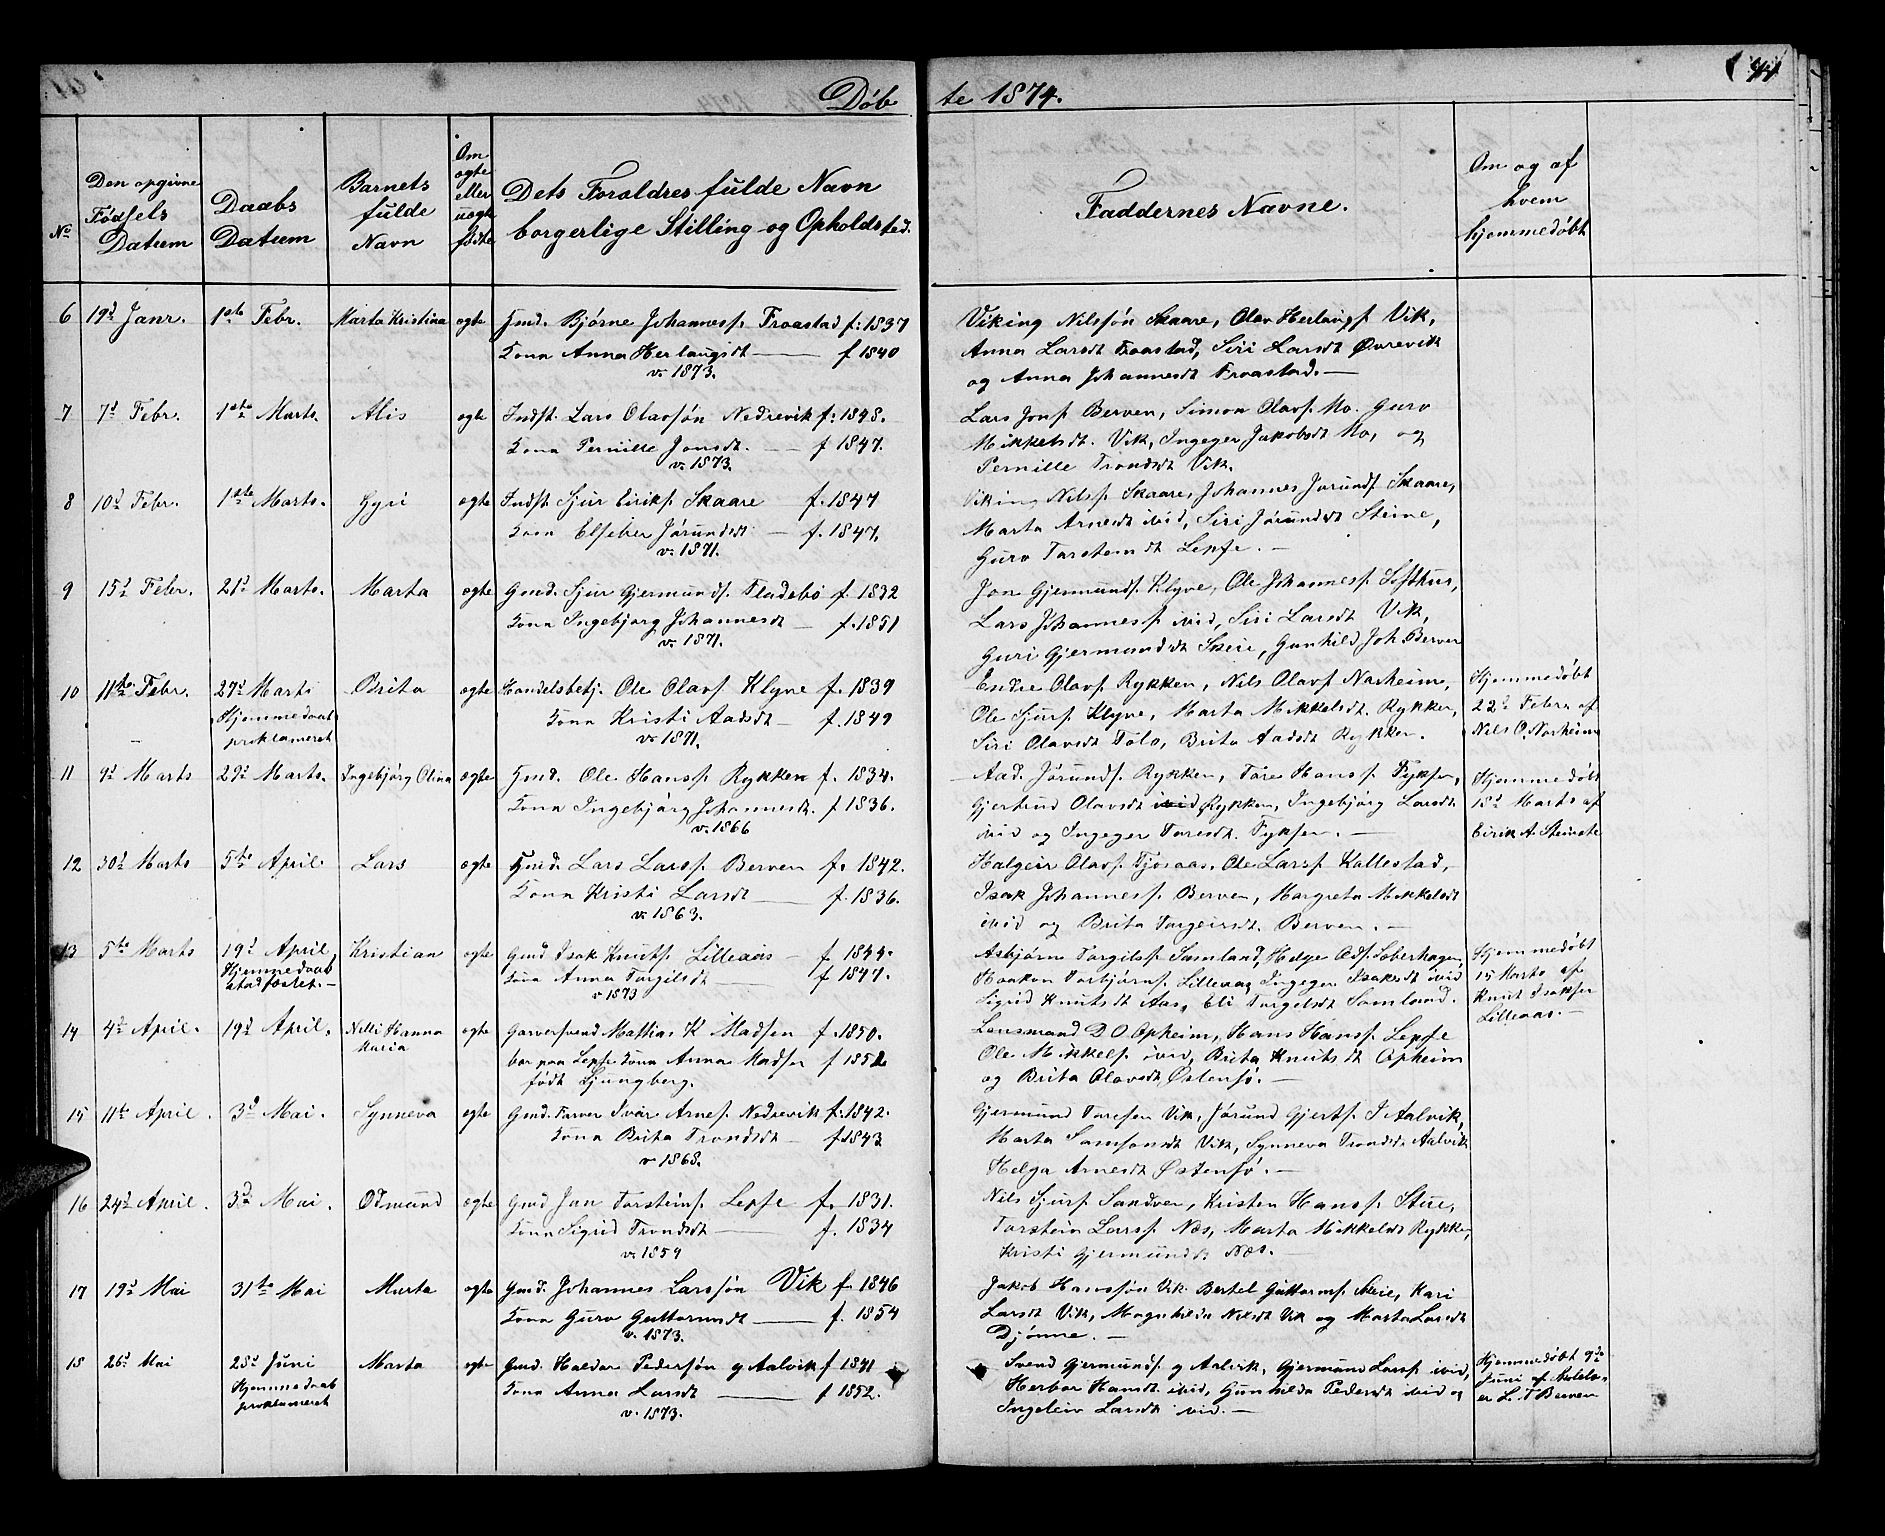 Døbte 1874.
44
No
Den opgivne Fødsels Datum
Daabs Datum
Barnets fulde Navn
Om ægte eller uægte fødte
Dets Forældres fulde Navn borgerlige Stilling og Opholdsted.
Faddernes Navne.
Om og af hvem hjemmedøbt
6 19d Janr. 1ste Febr. Marta Kristina ægte Gmd. Bjørne Johannesf. Froastad f. 1837
Kona Anna Herlaugsdt — f 1840
v. 1873.
Viking Nilssøn Skaare, Olav Herlaugsf Vik,
Anna Larsdt Froastad, Siri Larsdt Øvrevik
og Anna Johannesdt Froastad. —
7 7d Febr. 1ste Marts. Alis ægte Indst. Lars Olavsøn Nedrevik f. 1848.
Kona Pernille Jonsdt. — f 1847.
v. 1873.
Lars Jonsf Berven, Simon Olavf. Mo. Guro
Mikkelsdt. Vik, Ingeger Jakobsdt Mo, og
Pernille Trondsdt Vik.
8 10d Febr. 1ste Marts. Gyri ægte Indst Sjur Eiriksf. Skaare f. 1847
Kona Elseber Jørundsdt — f. 1847.
v. 1871.
Viking Nilsf. Skaare, Johannes Jørundf. Skaare,
Marta Arnesdt ivid, Siri Jørundsdt Steine,
Guro Torsteinsdt Lepse. —
9 15d Febr. 21d Marts. Marta ægte Gmd. Sjur Gjermundf. Fladebø f. 1832
Kona Ingebjørg Johannesdt — f. 1851
v. 1871.
Jon Gjermundf. Klyve, Ole Johannesf. Lofthus,
Lars Johannesf ivid, Siri Larsdt Vik,
Guri Gjermundsdt Skeie, Gunhild Joh. Berven
10 11te Febr. 27d Marts Brita ægte Handelsbetj. Ole Olavf Klyve f. 1839
Hjemmedaab
proklameret
Kona Kristi Aadsdt — f. 1849
v. 1871.
Endre Olavf. Rykken, Nils Olavf Norheim,
Ole Sjurf. Klyve, Marta Mikkelsdt. Rykken,
Siri Olavsdt Tolo, Brita Aadsdt Rykken.
Hjemmedøbt
22d Febr. af
Nils O. Norheim
11 9d Marts 29d Marts. Ingebjørg Olina ægte Gmd. Ole Hansf. Rykken f. 1834.
Kona Ingebjørg Johannesdt. f. 1836.
v. 1866
Aad. Jørundf. Rykken, Tore Hansf. Fyksen,
Gjertrud Olavsdt ivid Rykken, Ingebjørg Larsdt
ivid og Ingeger Toresdt. Fyksen. —
Hjemmedøbt
18d Marts af
Eirik A. Steinstø
12 30d Marts 5te April Lars ægte Gmd. Lars Larsf. Berven f. 1842.
Kona Kristi Larsdt — f. 1836.
v. 1863.
Halgeir Olavf. Tjosaas, Ole Larsf. Kallestad,
Isak Johannesf. Berven, Margreta Mikkelsdt
ivid og Brita Torgeirsdt. Berven. —
13 5te Marts 19d April Kristian ægte Gmd Isak Knutf. Lilleaas — f 1844.
Hjemmedaab
stadfæstet. —
Kona Anna Torgilsdt — f 1847.
v 1873
Asbjørn Torgilsf. Samland, Helge Odsf. Soberhagen,
Haakon Torbjørnf. Lilleaas, Ingeger Isaksdt ivid
Sigrid Knutsdt Aas, Eli Torgilsdt Samland.
Hjemmedøbt
15 Marts af
Knut Isaksen
Lilleaas. —
14 4d April. 19d April. Nilli Hanna Maria ægte Garversvend Mathias K Madsen f. 1850.
bor paa Lepse Kona Anna Madsen f 1852
født Ljungberg.
Lensmand D O Opheim, Hans Hansf. Lepse
Ole Mikkelf. ivid, Brita Knutsdt Opheim
og Brita Olavsdt Østensø. —
15 11te April. 3d Mai. Synneva ægte Gmd. Farver Ivar Arnef. Nedrevik f. 1842.
Kona Brita Trondsdt — f 1843
v 1868.
Gjermund Toresen Vik, Jørund Gjertf. I Aalvik,
Marta Samsonsdt Vik, Synneva Trondsdt Aalvik
Helga Arnesdt Østensø. —
16 24d April. 3d Mai. Odmund ægte Gmd Jon Torsteinf. Lepse f. 1831.
Kona Sigrid Trondsdt — f. 1834
v. 1859
Nils Sjurf Sandven, Kristen Hansf. Stue,
Torstein Larsf. Næs, Marta Mikkelsdt Rykken,
Kristi Gjermundsdt Næs. —
17 19d Mai 31te Mai Marta ægte Gmd. Johannes Larssøn Vik f. 1846
Kona Guro Guttormsdt — f. 1854
v. 1873.
Jakob Hanssøn Vik Bertel Guttormsf. Skeie, Kari
Larsdt Vik, Magnhilda Nilsdt Vik og Marta Larsdt
Djønne. —
18 26d Mai 28d Juni Marta ægte Gmd. Haldor Pedersøn y Aalvik f 1841
Hjemmedaab
proklameret
Kona Anna Larsdt — f 1852.
v. 1873.
Svend Gjermundf. y Aalvik, Gjermund Larsf ivid,
Herbor Hansdt ivid, Gunhilda Pedersdt ivid og
Ingeleiv Larsdt ivid. —
Hjemmedøbt 9de
Juni af Skolelæ-
er L. T Berven